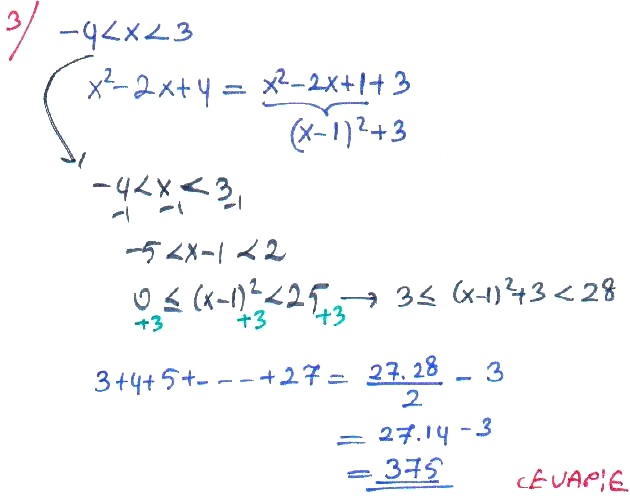 3/ -4<x<3
x²-2x+4 = x²-2x+1+3
(x-1)²+3
-4<x<3
-1 -1 -1
-5<x-1<2
0≤(x-1)²<25 → 3≤(x-1)²+3<28
+3 +3 +3
3+4+5+----+27 = 27.28/2 - 3
= 27.14-3
= 375
CEVAP:E